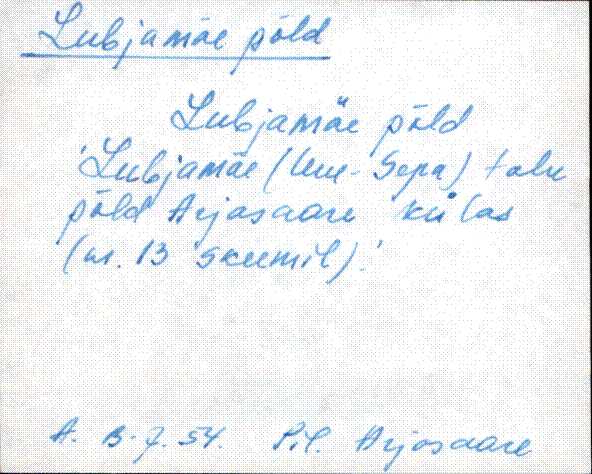 Lubjamäe põld
Lubjamäe põld
'Lubjamäe (Uue-Sepa) talu
põld Arjasaare külas
(nr. 13 skeemil).'
A. B. 7. 54. Pil. Arjasaare